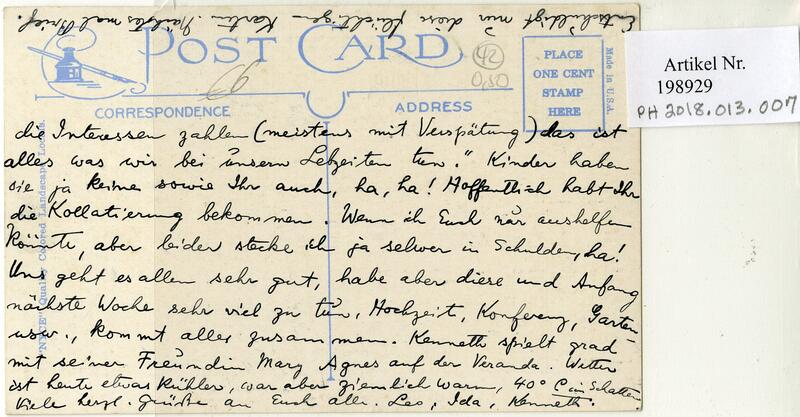 Entschuldigt nur diese flüchtigen Karten. Nächstes mal Brief.
POST CARD
42
0,50
66
PLACE
ONE CENT
STAMP
HERE
Made in U.S.A.
Artikel Nr.
198929
PH 2018.013.007
CORRESPONDENCE
ADDRESS
"NYCE" Quality Colored Landscape Locals.
die Interessen zahlen (meistens mit Verspätung) das ist
alles was wir bei unsern Lebzeiten tun." Kinder haben
sie ja keine sowie Ihr auch, ha, ha! Hoffentlich habt Ihr
die Kollatierung bekommen. Wenn ich Euch nur aushelfen
könnte, aber leider stecke ich ja selwer in Schulden, ha!
Uns geht es allen sehr gut, habe aber diese und Anfang
nächste Woche sehr viel zu tun, Hochzeit, Konferenz, Garten
usw., kommt alles zusammen. Kenneth spielt grad
mit seiner Freundin Mary Agnes auf der Veranda. Wetter
ist heute etwas kühler, war aber ziemlich warm, 40° C im Schatten
Viele herzl. Grüße an Euch alle. Leo, Ida, Kenneth.